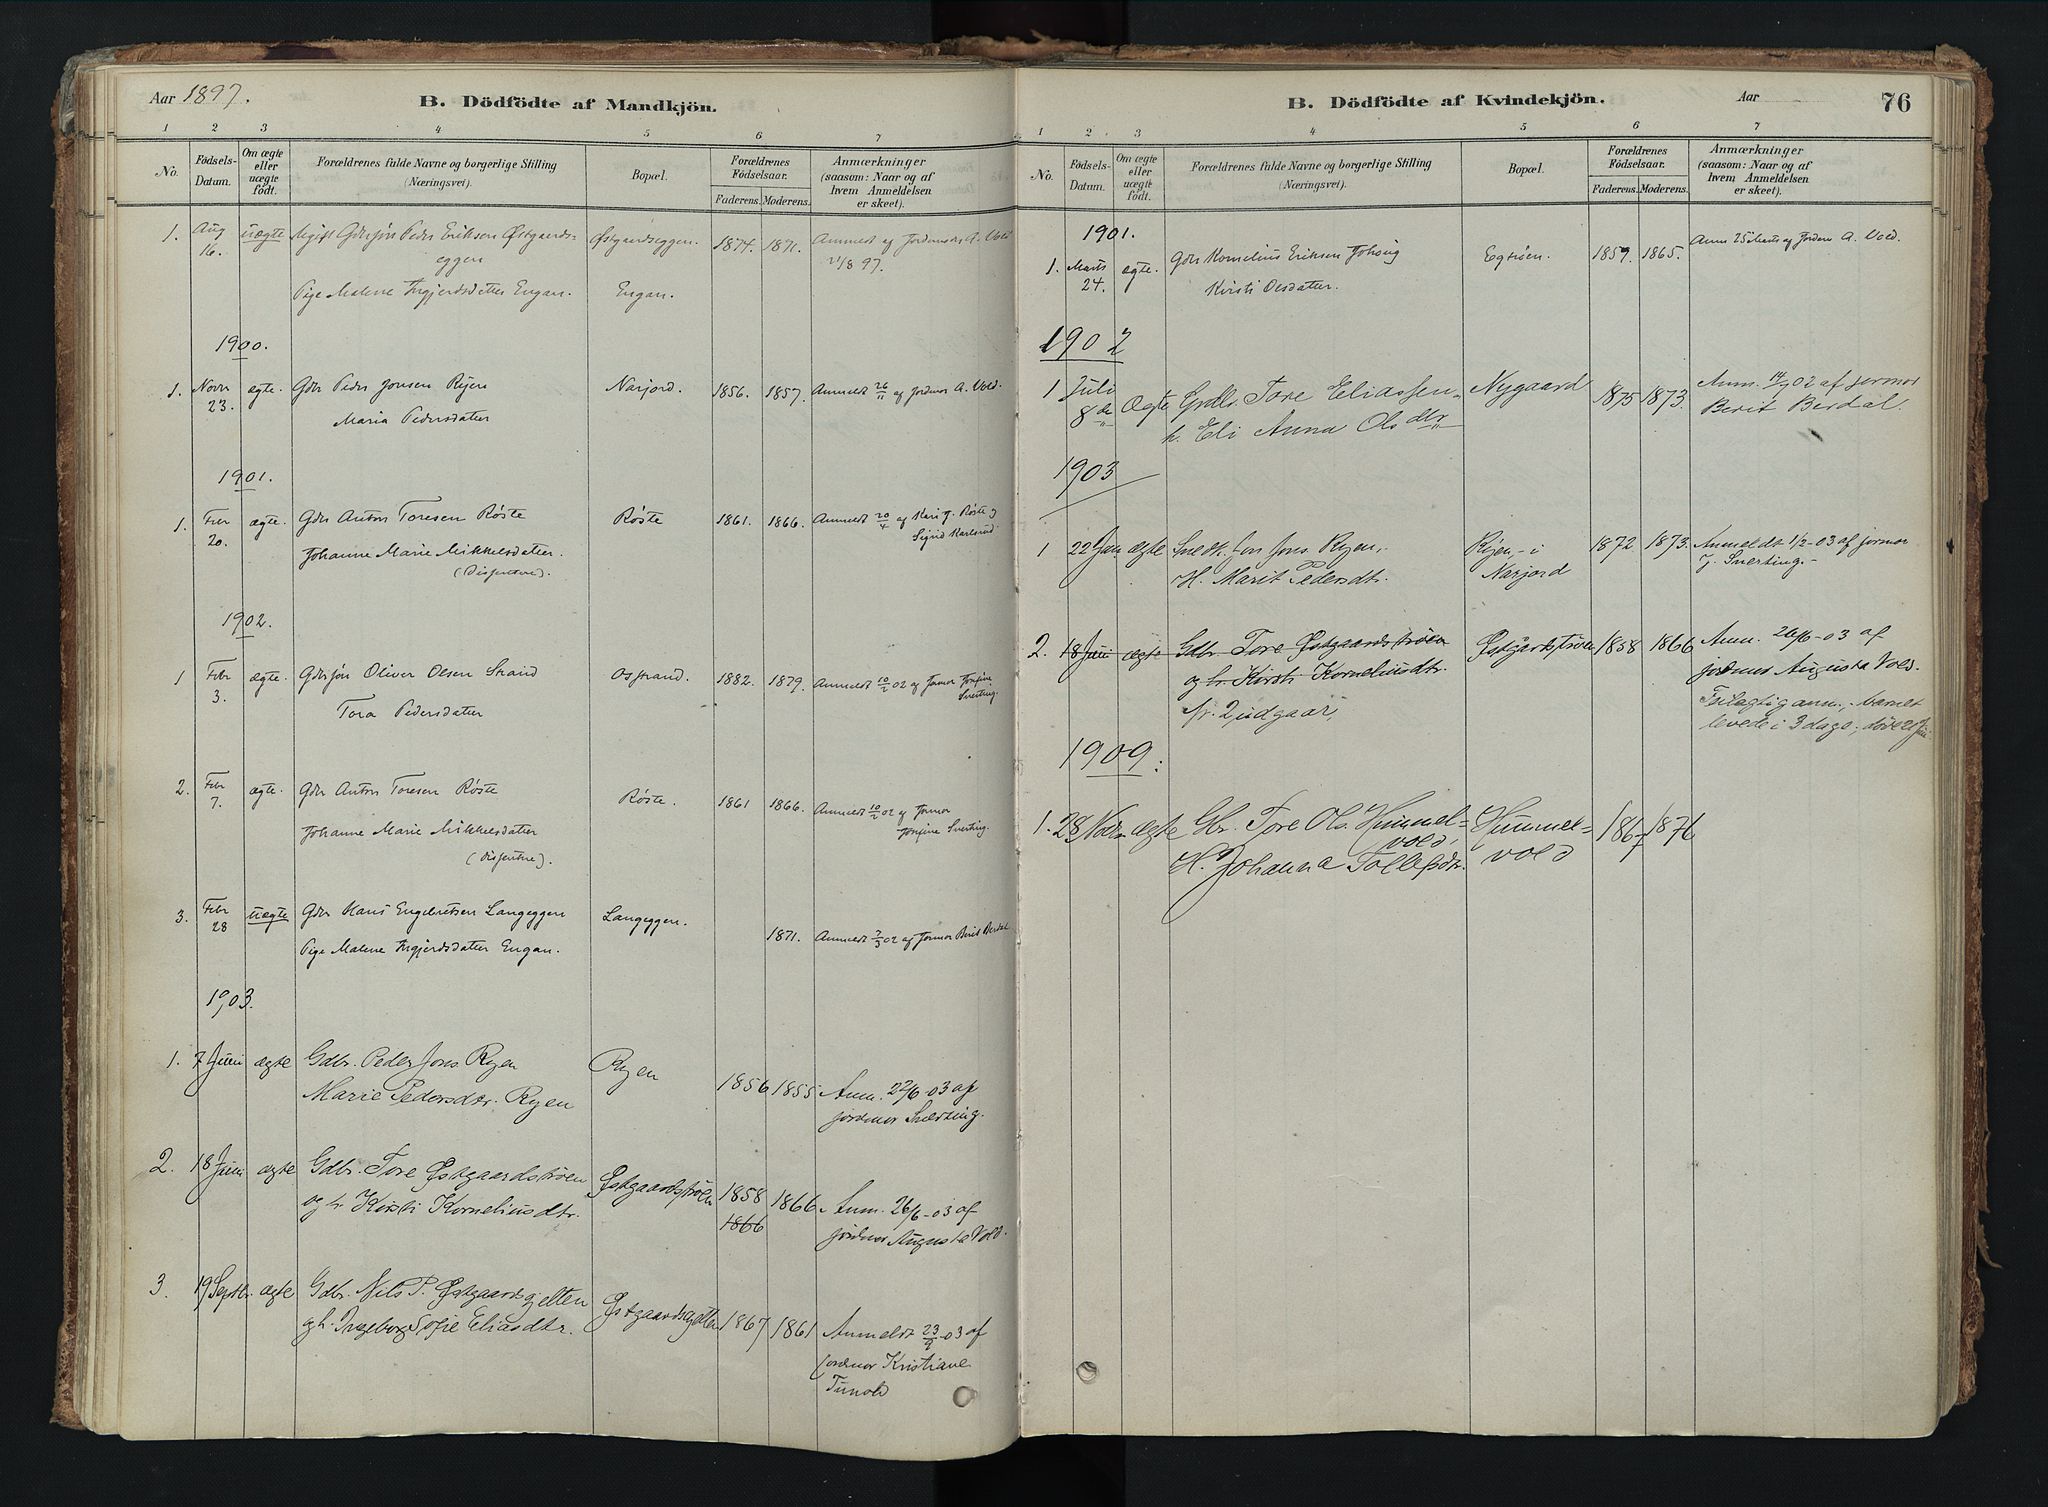 Aar 1897.
B. Dödfödte af Mandkjön.
1 2 3 4 5 6 7
No. Födsels-Datum. Om ægte eller uægte født. Forældrenes fulde Navne og borgerlige Stilling (Næringsvei). Bopæl. Forældrenes Födselsaar. Faderens. Moderens. Anmærkninger (saasom: Naar og af hvem Anmeldelsen er skeet).
1. Aug 16. uægte Ugift Gdrsøn Peder Eriksen Østgaards- Østgaardseggen. 1874. 1871. Anmeldt af Jordmor A. Vold
eggen 21/8 97.
Pige Malene Ingjerdsdatter Engan. Engan.
1900.
1. Novr 23. ægte. Gdr Peder Jonsen Ryen Narjord. 1856. 1857. Anmeldt 26/11 af Jordmor A. Vold.
Maria Pedersdatter
1901.
1. Febr 20. ægte. Gdr Anton Toresen Røste Røste 1861. 1866. Anmeldt 20/4 af Kari J. Røste og
Johanne Marie Mikkelsdatter. Sigrid Karlsrud.
(Dissentere).
1902.
1 Febr 3. ægte. Gdrsøn Oliver Olsen Strand Osstrand. 1882. 1879. Anmeldt 10/2 02 af Jormor Jonfine
Tora Pedersdatter Sverting.
2. Febr 7. ægte. Gdr Anton Toresen Røste Røste. 1861 1866. Anmeldt 10/2 02 af Jormor
Johanne Marie Mikkelsdatter Jonfine Sverting.
(Dissentere).
3. Febr 28 uægte Gdr Hans Engebretsen Langeggen Langeggen.
Pige Malene Ingjerdsdatter Engan. 1871. Anmeldt 7/3 02 af Jormor Berit Berdal
1903.
1. 7 Juni ægte Gdbr. Peder Jons. Ryen Ryen 1856 1855 Anm. 22/6-03 af
Marie Pedersdtr. Ryen jordmor Sverting.
2. 18 Juni ægte Gdbr. Tore Østgaardstrøen Østgaardstrøen 1858 1866 Anm. 26/6-03 af
og h. Kirsti Korneliusdtr. 1866 jordmor Augusta Vold.
3. 19 Septbr. ægte Gdbr. Nils P. Østgaardsgjelten Østgaardsgjelten 1867 1861 Anmeldt 23/9-03 af
og h. Ingeborg Sofie Eliasdtr. jordmor Kristiane
Tunold
B. Dödfödte af Kvindekjön.
Aar
76
1 2 3 4 5 6 7
No. Födsels-Datum. Om ægte eller uægte födt. Forældrenes fulde Navne og borgerlige Stilling (Næringsvei). Bopæl. Forældrenes Födselsaar. Faderens. Moderens. Anmærkninger (saasom: Naar og af hvem Anmeldelsen er skeet).
1901.
1. Marts 24. ægte. Gdr Kornelius Eriksen Egtrøen. 1859. 1865. Anm 25 Marts af Jordm A. Vold.
Kirsti Olsdatter.
1902
1 Juli 8de Ægte Grdbr. Tore Eliassen Nygaard 1875 1873. Anm. 14/7 02 af jormor
h. Eli Anna Olsdtr Berit Berdal.
1903
1 22 Jan ægte Snedk. Jon Jons. Ryen, Ryen, - i 1872. 1873. Anmeldt 1/2-03 af jormor
H. Marit Pedersdtr. Narjord J. Sverting.-
2. 18 Juni ægte Gdbr. Tore Østgaardstrøen Østgårdstrøen 1858 1866 Anm. 26/6-03 af
og h. Kirsti Korneliusdtr. jordmor Augusta Vold.
Feilagtig anm., - barnet
levede i 3 dage; døde 21 Juni
1909.
1. 28 Novbr ægte Gbr. Tore Ols. Hummel= Hummel= 1867 1876
vold, vold
H. Johanna Tollefsdtr.